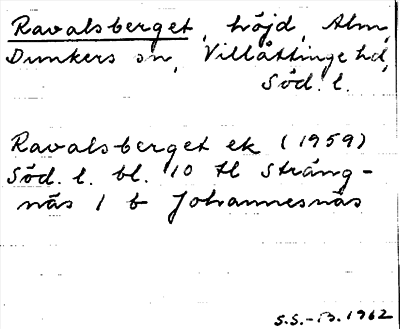 Ravalsberget, höjd, Alm,
Dunkers sn, Villåttinge hd,
Söd. l.
Ravalsberget ek (1959)
Söd. l. bl. 10 tl Sträng-
näs 1 b Johannesnäs
S.S.-B. 1962